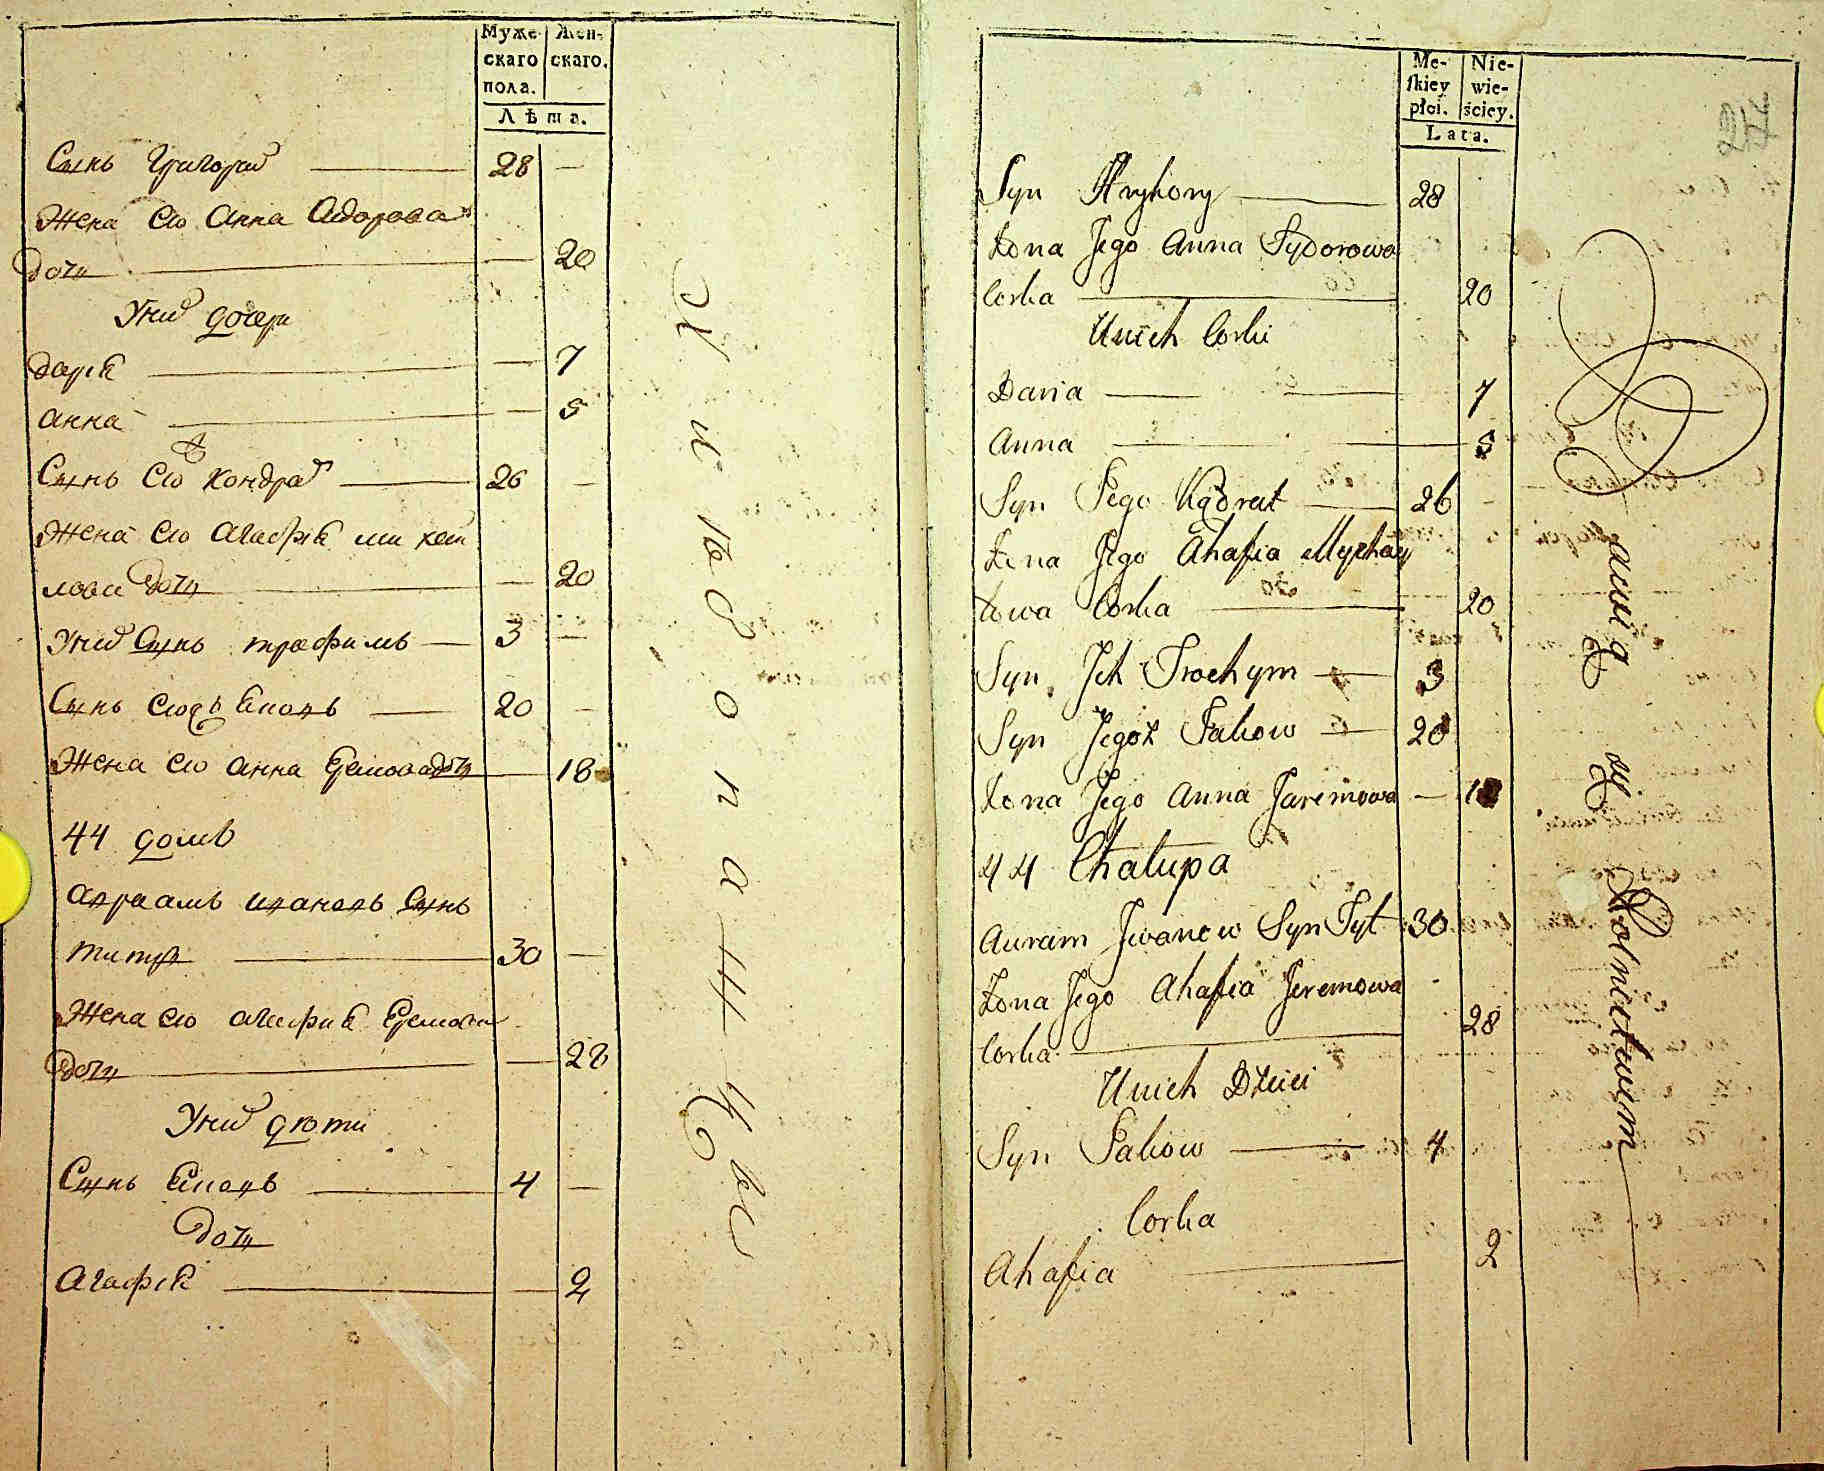 Муже-
скаго
пола.
Жен-
скаго.
Лѣта.
Сынъ Григорий 28 —
Жена Его Анна Сидорова
дочь — 20
У них дочери
Дария — 7
Анна — 5
Сынъ Его Кондрат 26 —
Жена Его Агафия Михаи
лова дочь — 20
У них Сынъ Трофимъ 3 —
Сынъ Его Яковъ 20 —
Жена Его Анна Еремова дочь — 18
44 домъ
Авраамъ Ивановъ Сынъ
Титъ 30 —
Жена Его Агафия Еремова
дочь — 28
У них дѣти
Сынъ Яковъ 4 —
дочь
Агафия — 2
Me-
skiey
płci.
Nie-
wie-
ściey.
Lata.
42
Syn Hryhory 28
Żona Jego Anna Sydorowa
Corka 20
U nich Corki
Daria 7
Anna 5
Syn Jego Kądrat 26
Żona Jego Ahafia Mychay
łowa Corka 20
Syn Jch Trochym 3
Syn Jegoż Jakow 20
Żona Jego Anna Jaremowa — 18
44 Chałupa
Auram Jwanow Syn Tyt 30
Żona Jego Ahafia Jeremowa
Corka 28
U nich Dzieci
Syn Jakow 4
Corka
Ahafia 2